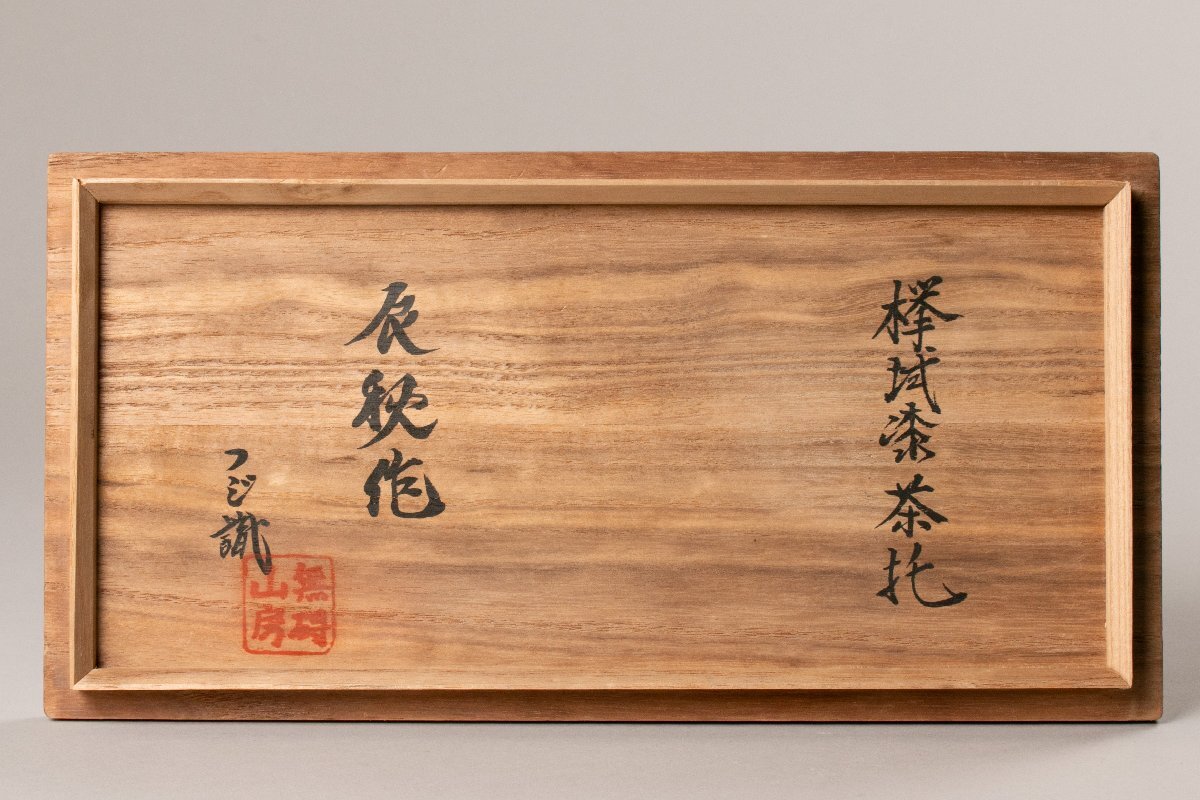 欅拭漆茶托
辰秋作
フジ識
無碍
山房